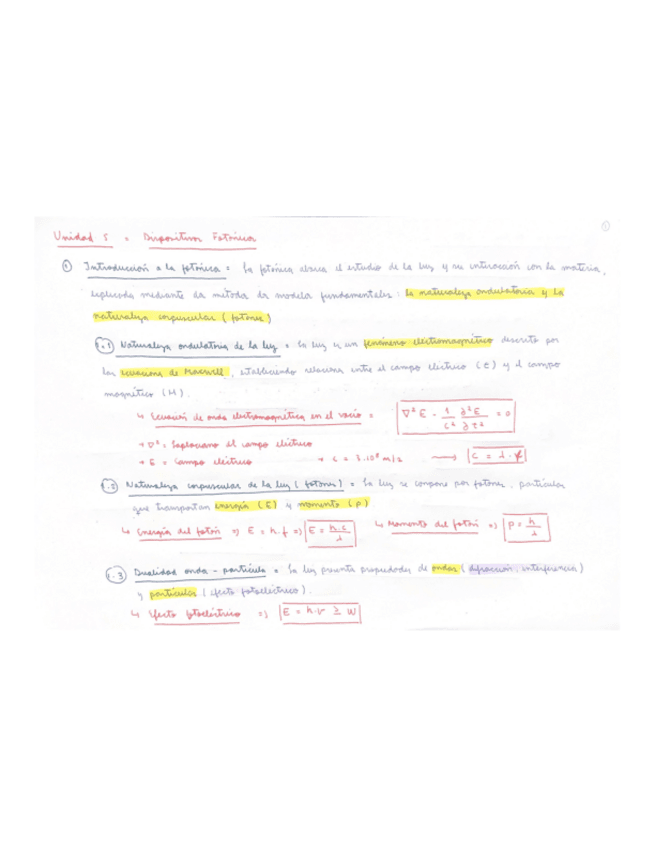 ①
Unidad 5 = Dispositivos Fotónicos
① Introducción a la fotónica = La fotónica abarca el estudio de la luz y su interacción con la materia,
explicada mediante modelos fundamentales: la naturaleza ondulatoria y la
naturaleza corpuscular (fotones)
1.1 Naturaleza ondulatoria de la luz = La luz es un fenómeno electromagnético descrito por
las ecuaciones de Maxwell, estableciendo relaciones entre el campo eléctrico (E) y el campo
magnético (H).
↳ Ecuación de onda electromagnética en el vacío = ∇²E - 1/c² ∂²E/∂t² = 0
→ ∇² = Laplaciano del campo eléctrico
→ E = Campo eléctrico → c = 3·10⁸ m/s ⟿ c = λ·f
1.2 Naturaleza corpuscular de la luz (fotones) = La luz se compone por fotones, partículas
que transportan energía (E) y momento (p)
↳ Energía del fotón => E = h.f => E = h.c/λ ↳ Momento del fotón => p = h/λ
1.3 Dualidad onda - partícula = La luz presenta propiedades de ondas (difracción, interferencia)
y partículas (efecto fotoeléctrico).
↳ Efecto fotoeléctrico => E = h.ν ≥ W